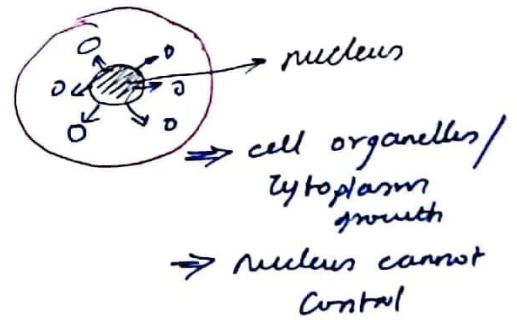 nucleus
⇒ cell organelles/
cytoplasm
growth
⇒ nucleus cannot
control